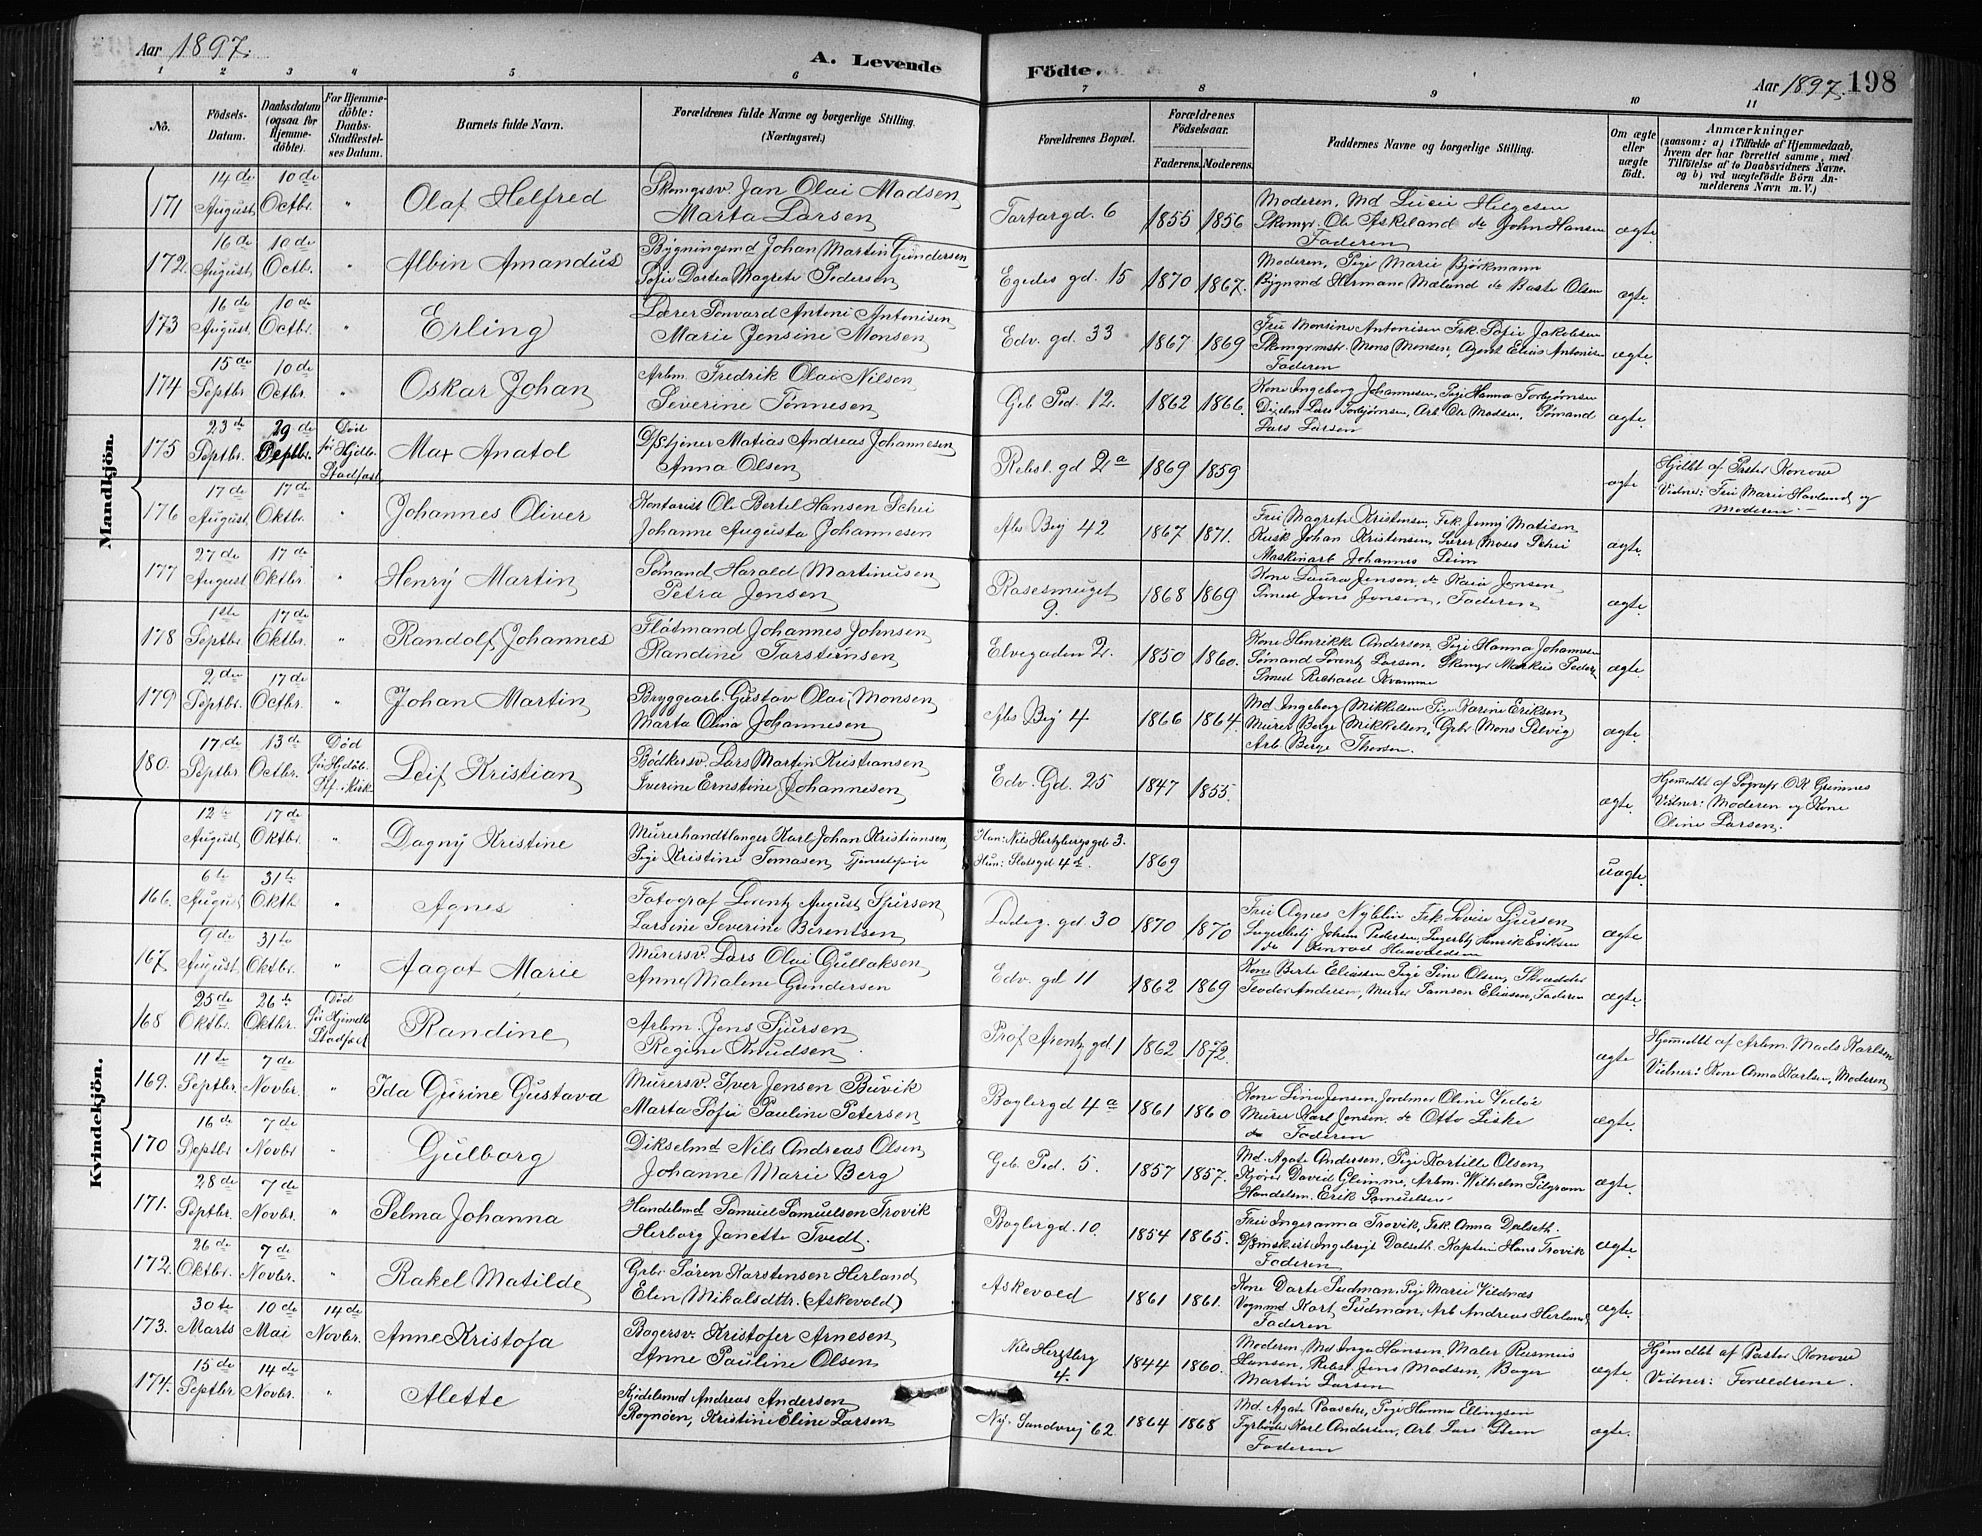 Aar 1897.
A. Levende
Födte.
Aar 1897. 198
1 2 3 4 5 6 7 8 9 10 11
No.
Födsels-Datum.
Daabsdatum (ogsaa for Hjemme-döbte).
For Hjemme-döbte: Daabs-Stadfæstel-ses Datum.
Barnets fulde Navn.
Forældrenes fulde Navne og borgerlige Stilling. (Næringsvei.)
Forældrenes Bopæl.
Forældrenes Födselsaar.
Faderens. Moderens.
Faddernes Navne og borgerlige Stilling.
Om ægte eller uægte födt.
Anmærkninger
(saasom: a) i Tilfælde af Hjemmedaab, hvem der har forrettet samme, med Tilföielse af to Daabsvidners Navne, og b) ved uægtefödte Börn An-melderens Navn m. V.)
Mandkjön.
171 14de August 10de Octbr. " Olaf Helfred
Skomgrsv. Jan Olai Madsen
Marta Larsen
Tartargd. 6 1855 1856
Moderen, Md Lusie Helgesen
Skomgr. Ole Askeland do John Hansen
Faderen
ægte.
172. 16de August 10de Octbr. " Albin Amandus
Bygningsmd Johan Martin Gundersen
Sofie Dortea Magrete Pedersen
Egedes gd. 15 1870 1867.
Moderen, Pige Marie Bjørkmann
Bygnmd Hermane Mæland do Baste Olsen
ægte.
173 16de August 10de Octbr. " Erling
Lærer Antoni Antonisen
Marie Jensine Monsen
Edv. gd. 33 1867 1869
Frü Monsine Antonisen Frk. Sofie Jakobsen
Skomgrmstr. Mons Monsen, Agent Elias Antonisen
Faderen
ægte.
174 15de Septbr. 10de Octbr. " Oskar Johan
Arbm. Fredrik Olai Nilsen
Severine Tönnesen
Geb Ped. 12. 1862 1866.
Kone Ingeborg Johannesen, Pige Hanna Torbjørnsen
Lars Torbjørnsen, Arb. Ole Madsen, Sömand
Lars Larsen
ægte.
175 23de Septbr. 29de Septbr. Död för Hjdb. Stadfæst Max Anatol
D/Stjener Matias Andreas Johannesen
Anna Olsen
Rebsl. gd 2a 1869 1859
ægte
Hjdbt af Pastor Konow
Vidner: Frü Marie Havland og
Moderen.
176 17de August 17de Oktbr. " Johannes Oliver
Kontorist Ole Bertel Hansen Schei
Johanne Augusta Johannesen
Abs Bej 42 1867 1871.
Frü Magrete Kristensen, Frk. Jenny Matisen
Kusk Johan Kristensen, Lærer Moses Schei
Maskinarb Johannes
ægte.
177 27de August 17de Oktbr. " Henry Martin
Sömand Harald Martinusen
Petra Jensen
Rasesmuget 9. 1868 1869
Kone Laura Jensen, do Kaia Jensen
Smed Jens Jensen, Faderen
ægte.
178 1ste Septbr. 17de Oktbr. " Randolf Johannes
Flötmand Johannes Johnsen
Randine Tarstensen
Elvegaden 2. 1850 1860.
Kone Henrikke Andersen, Pige Hanna Johannesen
Sömand Lorentz Larsen, Skomgr Markus Peders.
Smed Richard Kvamme
ægte.
179 2den Septbr. 17de Octbr. " Johan Martin
Bryggearb. Gustav Olai Monsen
Marta Olina Johannesen
Abs Bej 4 1866 1864.
Md. Ingeborg Mikkelsen Pige Karine Eriksen
Murer Berge Mikkelsen, Grbr Mons Selvig
Arb. Berge Thorsen.
ægte.
180. 17de Septbr. 13de Octbr. Död för Hjdöb. Stf. i Kirk Leif Kristian
Bödkersv. Lars Martin Kristiansen
Iverine Ernstine Johannesen
Edv. Gd. 25 1847 1855.
ægte.
Hjemmdbt af Sognepr OK Grimnes
Vidner: Moderen og Kone
Oline Larsen.
Kvindekjön.
12te August 17de Oktbr. " Dagny Kristine
Murerhandtlanger Karl Johan Kristiansen
Pige Kristine Tomasen, Tjenestepige
Han: Nils Hertzbergs gd 3.
Hun: Slotsgd 4 1869
uægte.
166. 6te August 31te Oktb. " Agnes
Fotograf Lorentz August Sjursen
Larsine Severine Berentsen
Ludeg. gd. 30 1870 1870
Frü Agnes Nyblin Frk. Lovise Sjursen
Lagerbetj Johan Pedersen, Lagerbtj Henrik Eriksen
do Konrad
ægte
167 9de August 31te Oktbr. " Aagot Marie
Murersv. Lars Olai Gullaksen
Anne Malene Gundersen
Edv. gd 11 1862 1869
Kone Berte Eliassen Pige Sine Olsen, Skrædder
Teodor Andersen, Murer Samson Eliasen, Faderen
ægte.
168 25de Oktbr. 26te Oktbr. Död för Hjemdb Stadfæst Randine
Arbm. Jens Sjursen
Regine Knudsen
Prof Arentz gd. 1 1862 1872.
ægte
Hjemmdbt af Arbm. Mads Karlsen
Vidner: Kone Anna Karlsen, Moderen
169. 11te Septbr. 7de Novbr. " Ida Gurine Gustava
Murersv. Iver Jensen Buvik
Marta Sofie Pauline Petersen
Baglergd 4a 1861 1860
Kone Lina Jensen, Jordmor Oline Vedöe
Murer Karl Jensen, do Otto Liske
do Faderen
ægte.
170 16de Septbr. 7de Novbr " Gulborg
Dikselmd Nils Andreas Olsen
Johanne Marie Berg
Geb. Ped. 5. 1857 1857.
Md. Agate Andersen, Pige Kartille Olsen
Kjörer David Glimme, Arbm. Wilhelm Pilgram
Handelsm. Erik Samuelsen
ægte.
171. 28de Septbr. 7de Novbr. " Selma Johanna
Handelsmd Samuel Samuelsen Trovik
Herborg Janette Tvedt.
Baglergd. 10. 1854 1865.
Frü Ingeranna Trovik, Frk. Anna Dalseth.
D/Smskist Ingebrigt Dalseth, Kaptein Hans Trovik
Faderen
ægte.
172. 26de Oktbr. 7de Novbr. " Rakel Matilde
Grbr Sören Karstensen Herland
Elen Mikalsdtr. (Askevold)
Askevold 1861 1861.
Kone Darte Sudman, Pige Marie Vildnæs
Vognmd Kart Sudman, Arb Andreas Herland
Faderen
ægte.
173. 30te Marts 10de Mai 14de Novbr. Anne Kristofa
Bagersv. Kristofer Arnesen
Anne Pauline Olsen
Nils Hergtberg 4. 1844 1860.
Moderen, Md Inga Hansen, Maler Rasmus
Hansen, Rebsl. Jens Madsen, Bager
Martin Larsen
ægte.
Hjemdbt af Pastor Konow
Vidner: Forældrene.
174. 15de Septbr. 14de Novbr. " Alette
Kjedelsmd Andreas Andersen
Rognöen, Kristine Eline Larsen
Ny. Sandvej 62. 1864 1868
Md. Agate Paasche, Pige Hanna Ellingsen
Fyrböder Karl Andersen, Arb Lars Steen
Faderen
ægte.